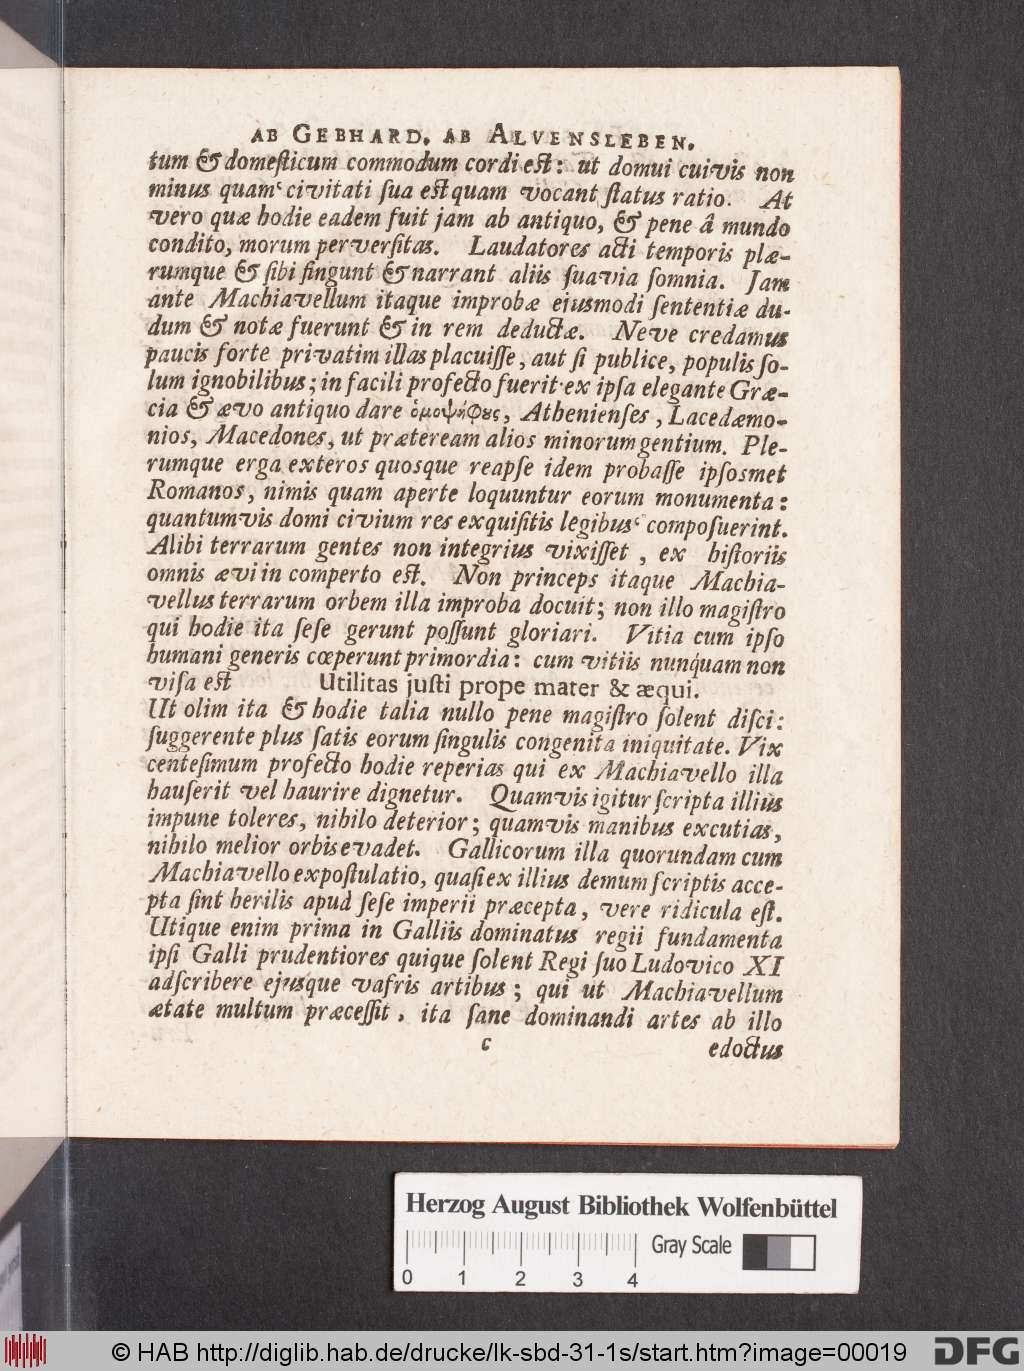 AB GEBHARD. AB ALVENSLEBEN.
tum & domeſticum commodum cordi eſt: ut domui cuivis non
minus quam civitati ſua eſt quam vocant ſtatus ratio. At
vero quæ hodie eadem fuit jam ab antiquo, & pene â mundo
condito, morum perverſitas. Laudatores acti temporis plæ-
rumque & ſibi fingunt & narrant aliis ſuavia ſomnia. Jam
ante Machiavellum itaque improbæ ejusmodi ſententiæ du-
dum & notæ fuerunt & in rem deductæ. Neve credamus
paucis forte privatim illas placuiſſe, aut ſi publice, populis ſo-
lum ignobilibus; in facili profecto fuerit ex ipſa elegante Græ-
cia & ævo antiquo dare ὁμοψήφȣς, Athenienſes, Lacedæmo-
nios, Macedones, ut præteream alios minorum gentium. Ple-
rumque erga exteros quosque reapſe idem probaſſe ipſosmet
Romanos, nimis quam aperte loquuntur eorum monumenta:
quantumvis domi civium res exquiſitis legibus compoſuerint.
Alibi terrarum gentes non integrius vixiſſet, ex hiſtoriis
omnis ævi in comperto eſt. Non princeps itaque Machia-
vellus terrarum orbem illa improba docuit; non illo magiſtro
qui hodie ita ſeſe gerunt poſſunt gloriari. Vitia cum ipſo
humani generis cœperunt primordia: cum vitiis nunquam non
viſa eſt Utilitas juſti prope mater & æqui.
Ut olim ita & hodie talia nullo pene magiſtro ſolent diſci:
ſuggerente plus ſatis eorum ſingulis congenita iniquitate. Vix
centeſimum profecto hodie reperias qui ex Machiavello illa
hauſerit vel haurire dignetur. Quamvis igitur ſcripta illius
impune toleres, nihilo deterior; quamvis manibus excutias,
nihilo melior orbis evadet. Gallicorum illa quorundam cum
Machiavello expoſtulatio, quaſi ex illius demum ſcriptis acce-
pta ſint herilis apud ſeſe imperii præcepta, vere ridicula eſt.
Utique enim prima in Galliis dominatus regii fundamenta
ipſi Galli prudentiores quique ſolent Regi ſuo Ludovico XI
adſcribere ejusque vafris artibus; qui ut Machiavellum
ætate multum præceſſit, ita ſane dominandi artes ab illo
c edoctus
Herzog August Bibliothek Wolfenbüttel
Gray Scale
0 1 2 3 4
© HAB http://diglib.hab.de/drucke/lk-sbd-31-1s/start.htm?image=00019
DFG